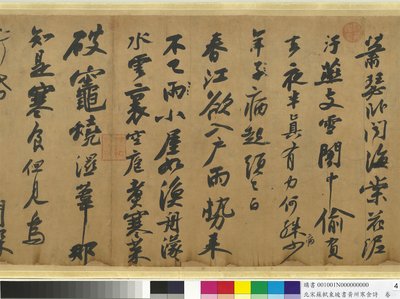 蕭瑟臥聞海棠花泥
汙燕支雪闇中偷負
去夜半真有力何殊少
病
年子病起頭已白
春江欲入戶雨勢來
不已雨小屋如漁舟濛
水雲裏空庖煮寒菜
破竈燒濕葦那
知是寒食但見烏
購書 001001N000000000
北宋蘇軾東坡書黃州寒食詩 卷
4